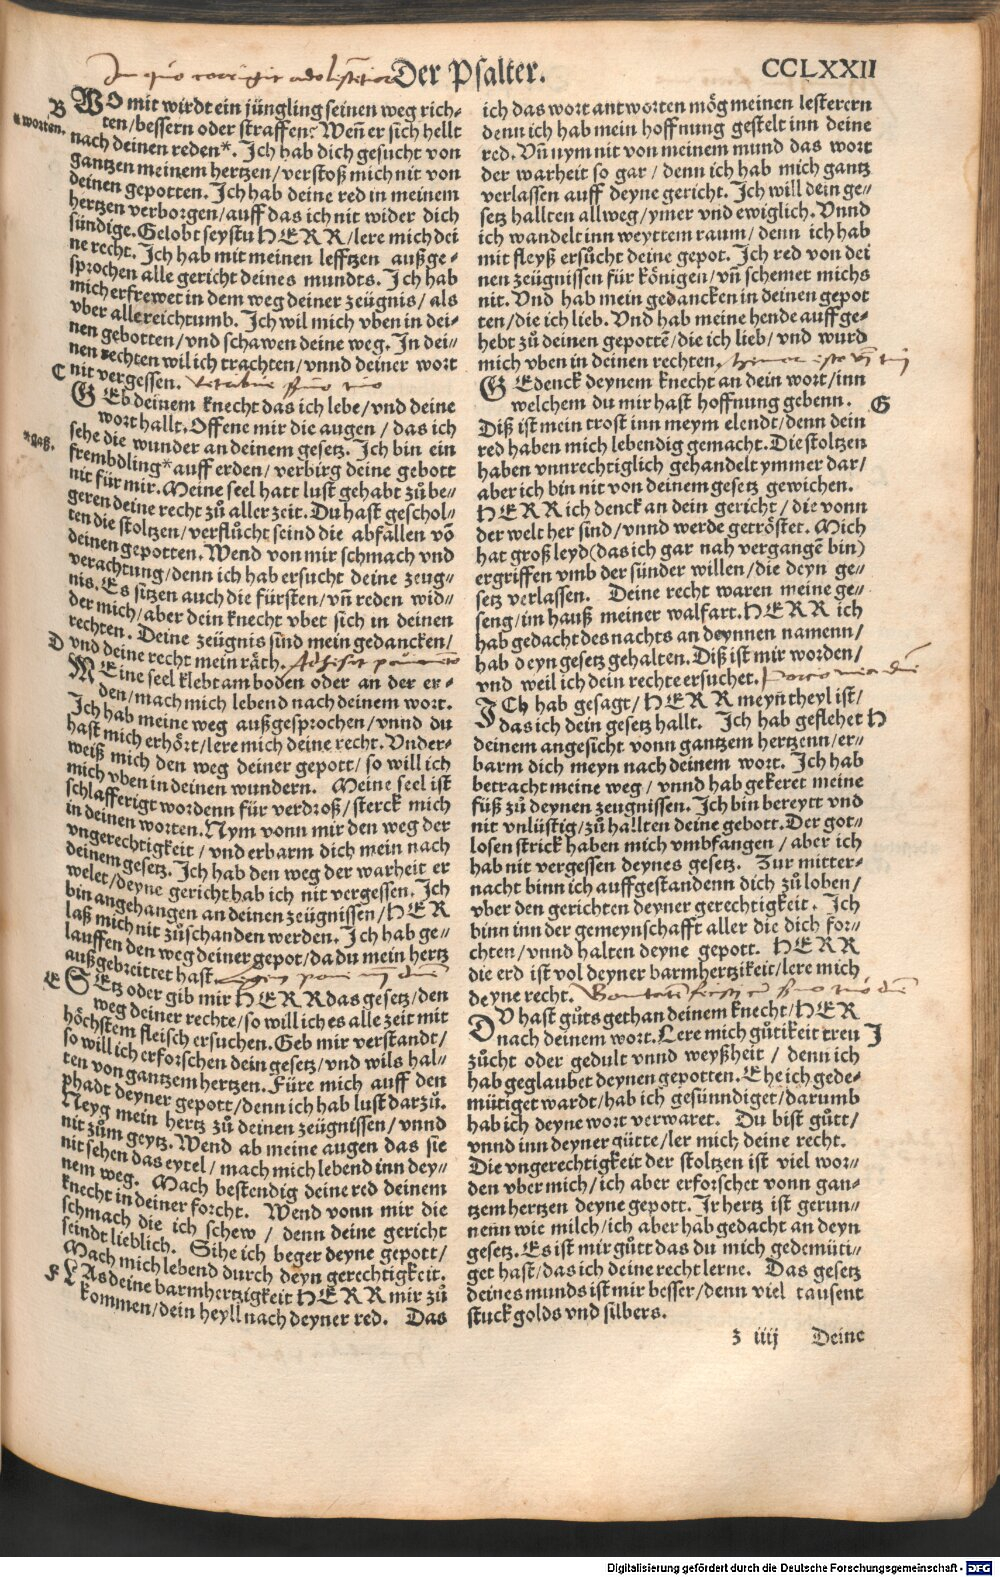 Der Psalter.
CCLXXII
B
WO mit wirdt ein jüngling seinen weg rich⸗
ten/bessern oder straffen? Weñ er sich hellt
worten.
nach deinen reden*. Ich hab dich gesucht von
gantzen meinem hertzen/verstoß mich nit von
deinen gepotten. Ich hab deine red in meinem
hertzen verborgen/auff das ich nit wider dich
sündige. Gelobt seystu HERR/lere mich dei
ne recht. Ich hab mit meinen lefftzen außge⸗
sprochen alle gericht deines mundts. Ich hab
mich erfrewet in dem weg deiner zeügnis/ als
vber alle reichtumb. Ich wil mich vben in dei⸗
nen gebotten/vnd schawen deine weg. In dei⸗
nen rechten wil ich trachten/vnnd deiner wort
C
nit vergessen.
GEb deinem knecht das ich lebe/vnd deine
wort hallt. Offene mir die augen/das ich
sehe die wunder an deinem gesetz. Ich bin ein
frembdling* auff erden/verbirg deine gebott
nit für mir. Meine seel hatt lust gehabt zů be⸗
geren deine recht zů aller zeit. Du hast geschol⸗
ten die stoltzen/verflůcht seind die abfallen võ
deinen gepotten. Wend von mir schmach vnd
verachtung/denn ich hab ersucht deine zeug⸗
nis. Es sitzen auch die fürsten/vñ reden wid⸗
der mich/aber dein knecht vbet sich in deinen
rechten. Deine zeügnis sind mein gedancken/
D
vnd deine recht mein räth.
MEine seel klebt am boden oder an der er⸗
den/mach mich lebend nach deinem wort.
Ich hab meine weg außgesprochen/vnnd du
hast mich erhört/lere mich deine recht. Vnder⸗
weiß mich den weg deiner gepott/so will ich
mich vben in deinen wundern. Meine seel ist
schlafferigt wordenn für verdroß/sterck mich
in deinen worten. Nym vonn mir den weg der
vngerechtigkeit/vnd erbarm dich mein nach
deinem gesetz. Ich hab den weg der warheit er
welet/deyne gericht hab ich nit vergessen. Ich
bin angehangen an deinen zeügnissen/HER
laß mich nit zůschanden werden. Ich hab ge⸗
lauffen den weg deiner gepot/da du mein hertz
außgebreittet hast.
E
SEtz oder gib mir HERR das gesetz/den
weg deiner rechte/so will ich es alle zeit mit
höchstem fleisch ersuchen. Geb mir verstandt/
so will ich erforschen dein gesetz/vnd wils hal⸗
ten von gantzem hertzen. Füre mich auff den
phadt deyner gepott/denn ich hab lust darzů.
Neyg mein hertz zů deinen zeügnissen/vnnd
nit zům geytz. Wend ab meine augen das sie
nit sehen das eytel/mach mich lebend inn dey⸗
nem weg. Mach bestendig deine red deinem
knecht in deiner forcht. Wend vonn mir die
schmach die ich schew/denn deine gericht
seindt lieblich. Sihe ich beger deyne gepott/
Mach mich lebend durch deyn gerechtigkeit.
F
LAs deine barmhertzigkeit HERR mir zů
kommen/dein heyll nach deyner red. Das
ich das wort antworten mög meinen lesterern
denn ich hab mein hoffnung gestelt inn deine
red. Vñ nym nit von meinem mund das wort
der warheit so gar/denn ich hab mich gantz
verlassen auff deyne gericht. Ich will dein ge⸗
setz hallten allweg/ymer vnd ewiglich. Vnnd
ich wandelt inn weyttem raum/denn ich hab
mit fleyß ersůcht deine gepot. Ich red von dei
nen zeügnissen für königen/vñ schemet michs
nit. Vnd hab mein gedancken in deinen gepot
ten/die ich lieb. Vnd hab meine hende auff ge⸗
hebt zů deinen gepottẽ/die ich lieb/vnd wurd
mich vben in deinen rechten.
GEdenck deynem knecht an dein wort/inn
welchem du mir hast hoffnung gebenn.
G
Diß ist mein trost inn meym elendt/denn dein
red haben mich lebendig gemacht. Die stoltzen
haben vnnrechtiglich gehandelt ymmer dar/
aber ich bin nit von deinem gesetz gewichen.
HERR ich denck an dein gericht/die vonn
der welt her sind/vnnd werde getröstet. Mich
hat groß leyd (das ich gar nah vergangẽ bin)
ergriffen vmb der sünder willen/die deyn ge⸗
setz verlassen. Deine recht waren meine ge⸗
seng/im hauß meiner walfart. HERR ich
hab gedacht des nachts an deynnen namenn/
hab deyn gesetz gehalten. Diß ist mir worden/
vnd weil ich dein rechte ersuchet.
ICh hab gesagt/HERR meyn theyl ist/
das ich dein gesetz hallt. Ich hab geflehet
H
deinem angesicht vonn gantzem hertzenn/er⸗
barm dich meyn nach deinem wort. Ich hab
betracht meine weg/vnnd hab gekeret meine
füß zů deynen zeugnissen. Ich bin bereytt vnd
nit vnlüstig/zů hallten deine gebott. Der got⸗
losen strick haben mich vmbfangen/aber ich
hab nit vergessen deynes gesetz. Zur mitter⸗
nacht binn ich auffgestandenn dich zů loben/
vber den gerichten deyner gerechtigkeit. Ich
binn inn der gemeynschafft aller die dich för⸗
chten/vnnd halten deyne gepott. HERR
die erd ist vol deyner barmhertzikeit/lere mich
deyne recht.
DV hast gůts gethan deinem knecht/HER
nach deinem wort. Lere mich gůtikeit treu
J
zůcht oder gedult vnnd weyßheit/denn ich
hab geglaubet deynen gepotten. Ehe ich gede⸗
mütiget wardt/hab ich gesünndiget/darumb
hab ich deyne wort verwaret. Du bist gůtt/
vnnd inn deyner gütte/ler mich deine recht.
Die vngerechtigkeit der stoltzen ist viel wor⸗
den vber mich/ich aber erforschet vonn gan⸗
tzem hertzen deyne gepott. Ir hertz ist gerun⸗
nenn wie milch/ich aber hab gedacht an deyn
gesetz. Es ist mir gůtt das du mich gedemüti⸗
get hast/das ich deine recht lerne. Das gesetz
deines munds ist mir besser/denn viel tausent
stuck golds vnd silbers.
z iiij Deine
Digitalisierung gefördert durch die Deutsche Forschungsgemeinschaft - DFG